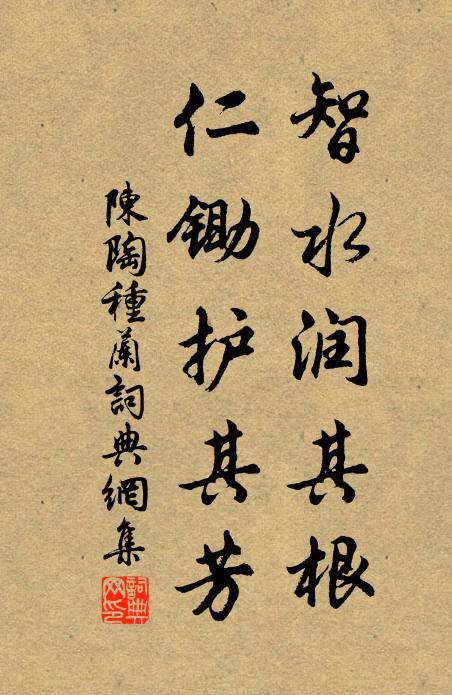 智水润其根
仁锄护其芳
陳陶種蘭詞典網集
詞典网印